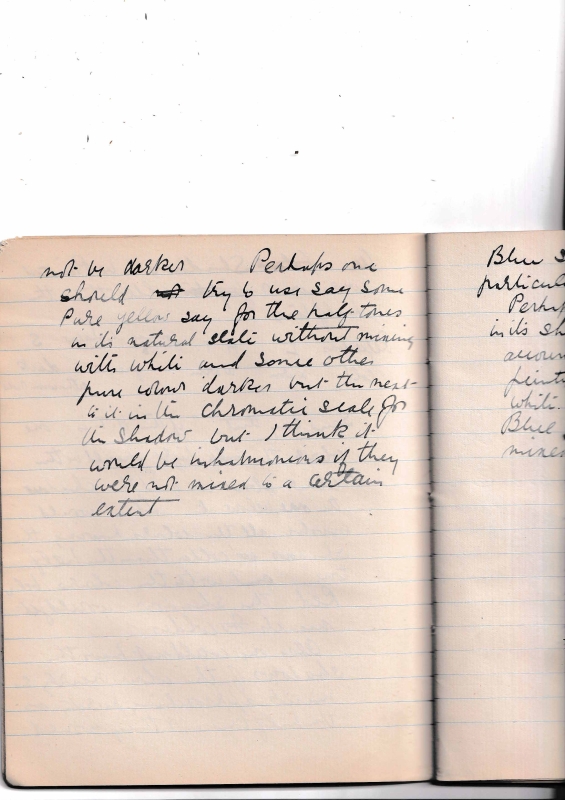 not be darker Perhaps one
should not try to use say some
Pure yellow say for the half tones
in its natural state without mixing
with white and some other
pure colour darker but the next
to it in the chromatic scale for
the shadow but I think it
would be inharmonious if they
were not mixed to a certain
extent
Blue
Perhap
in its sh
white.
Blue
mixed